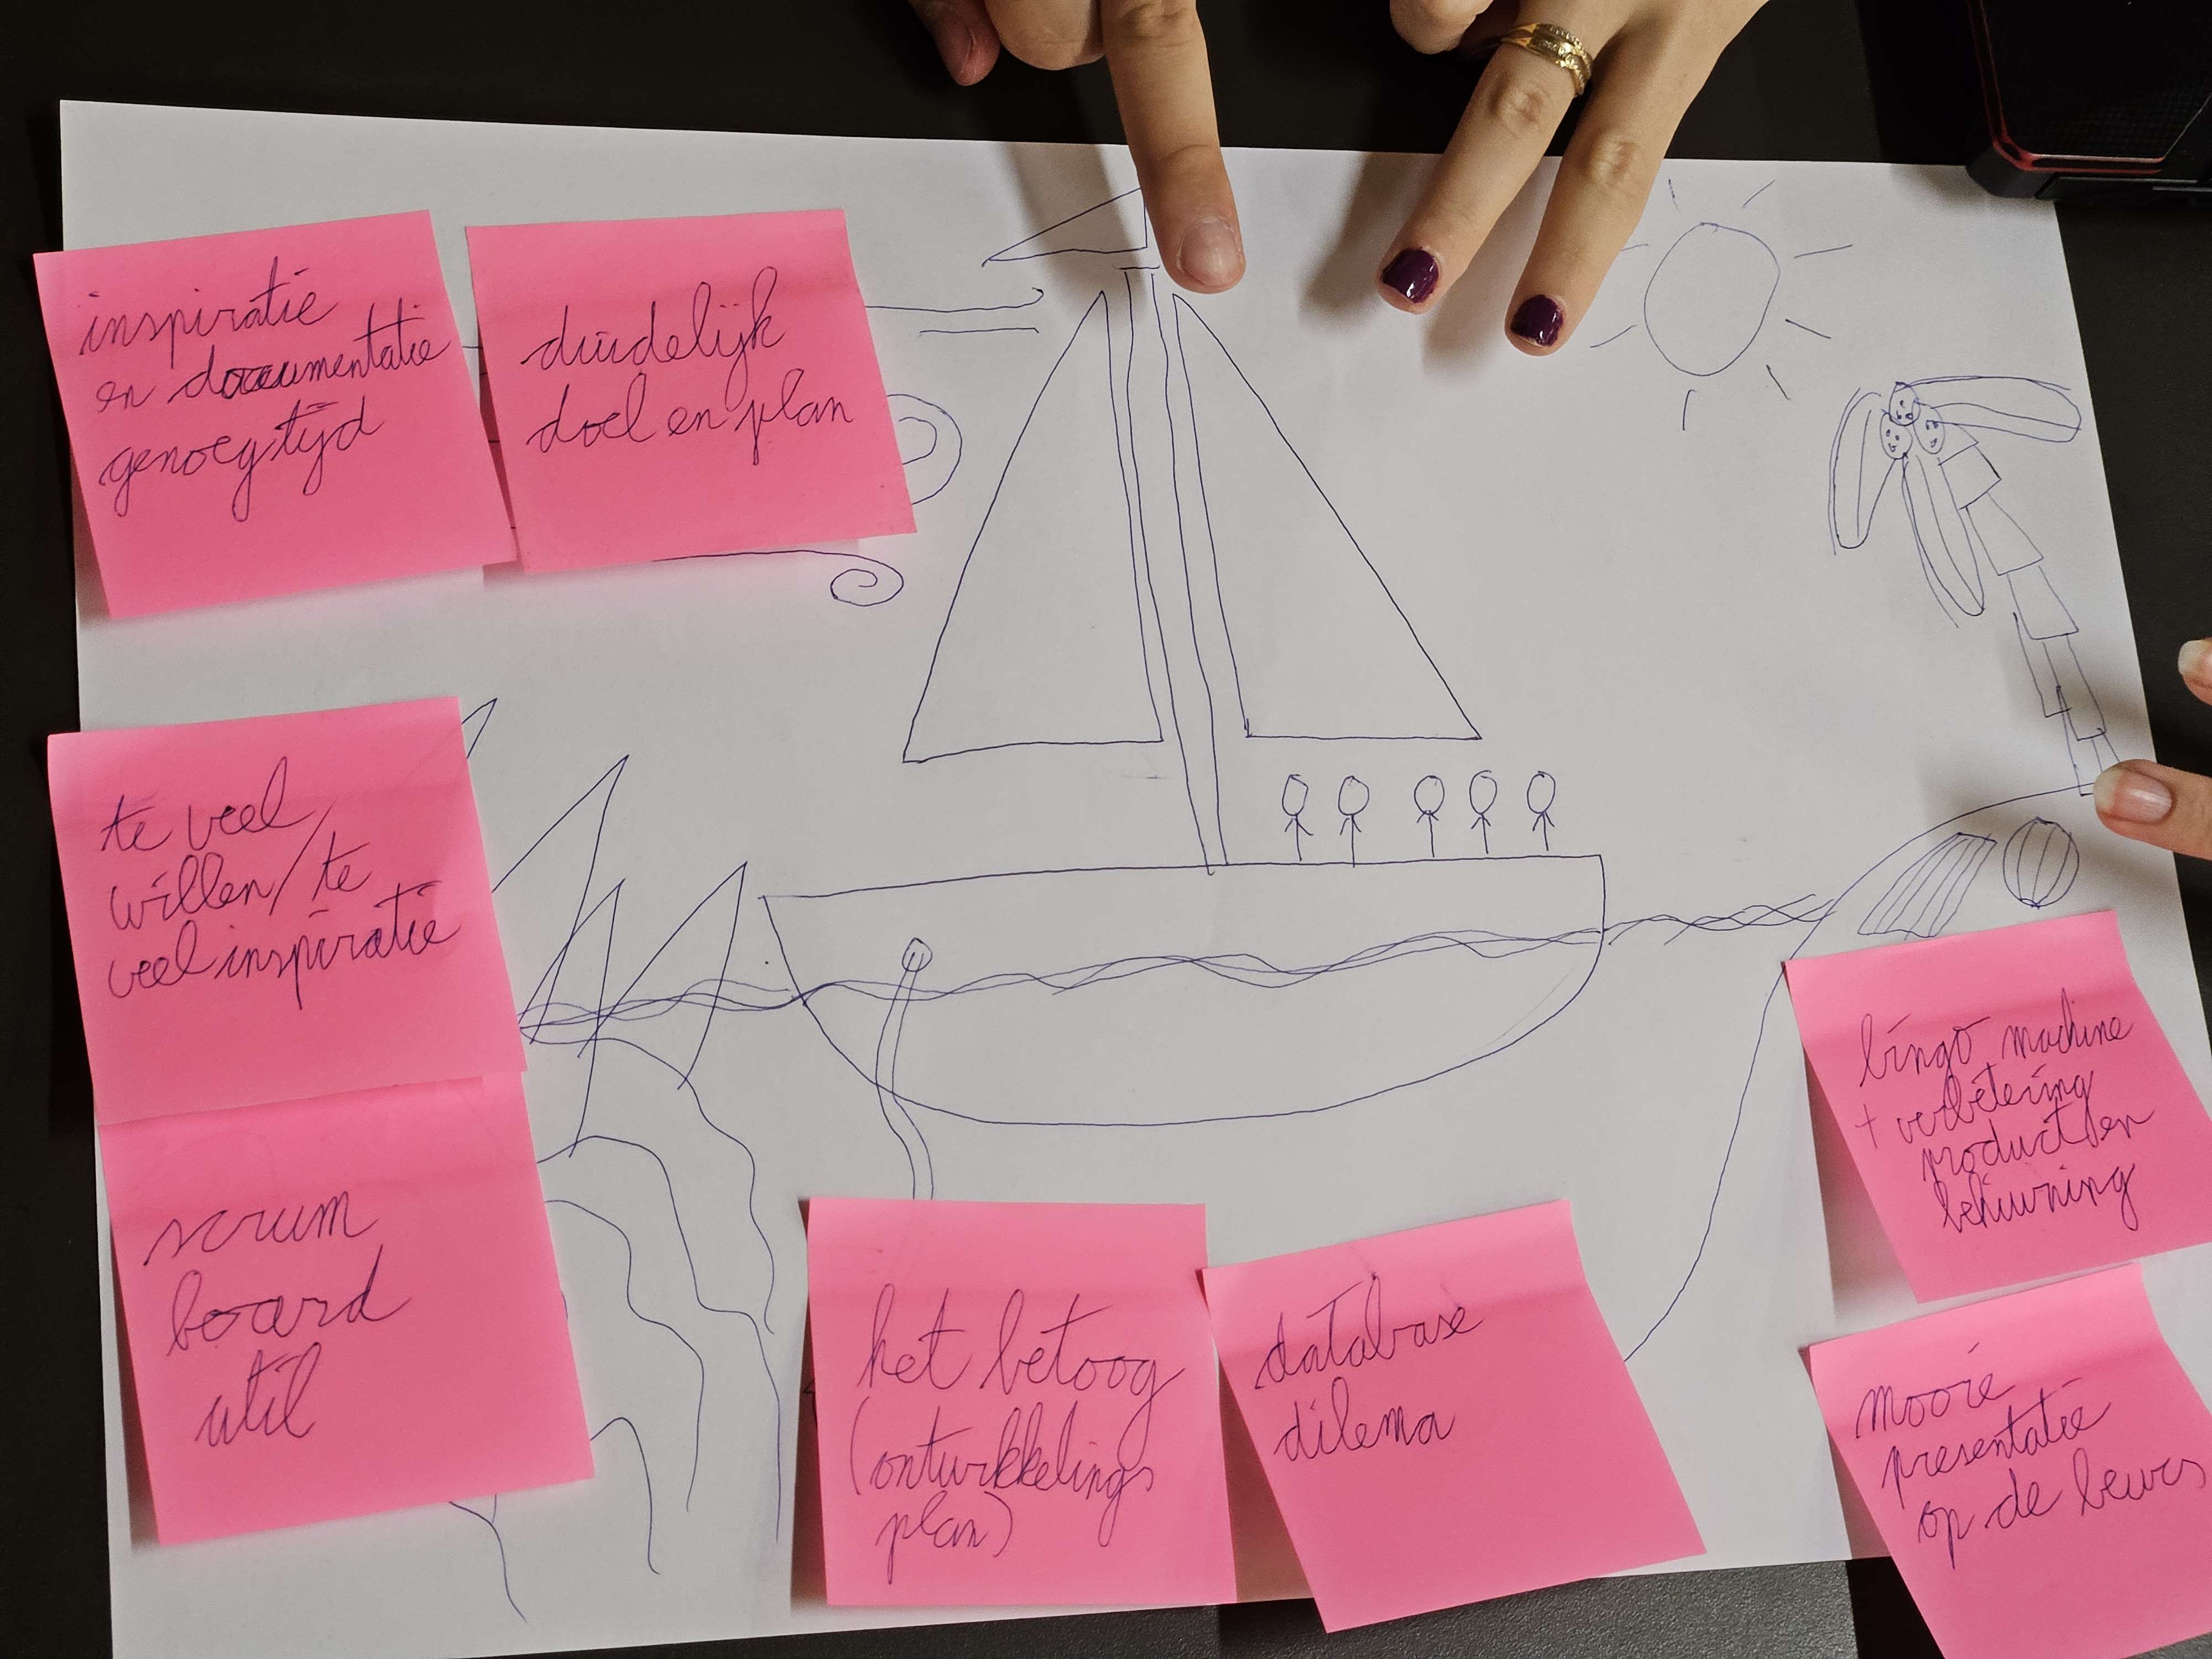 inspiratie
en documentatie
genoeg tijd
duidelijk
doel en plan
te veel
willen / te
veel inspiratie
scrum
board
util
het betoog
(ontwikkelings
plan)
database
dilema
bingo machine
+ verbetering
product en
mooie
presentatie
op de beurs